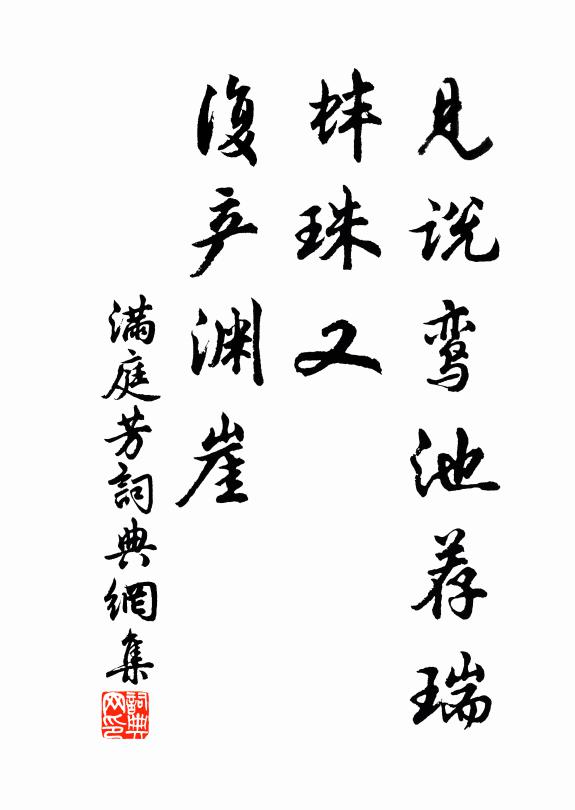 见说鸾池荐瑞
蚌珠又
复产渊崖
满庭芳詞典網集
詞典網印